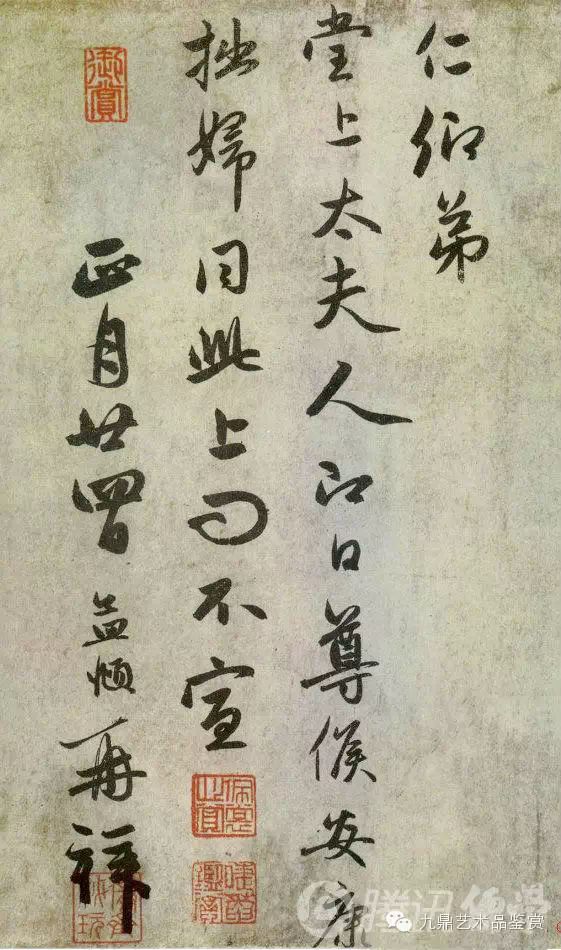 仁卿弟
堂上太夫人即日尊候安康
拙婦同此上問不宣
正月廿四日 益 再拜
御賞
腾讯儒學
九鼎艺术品鉴赏